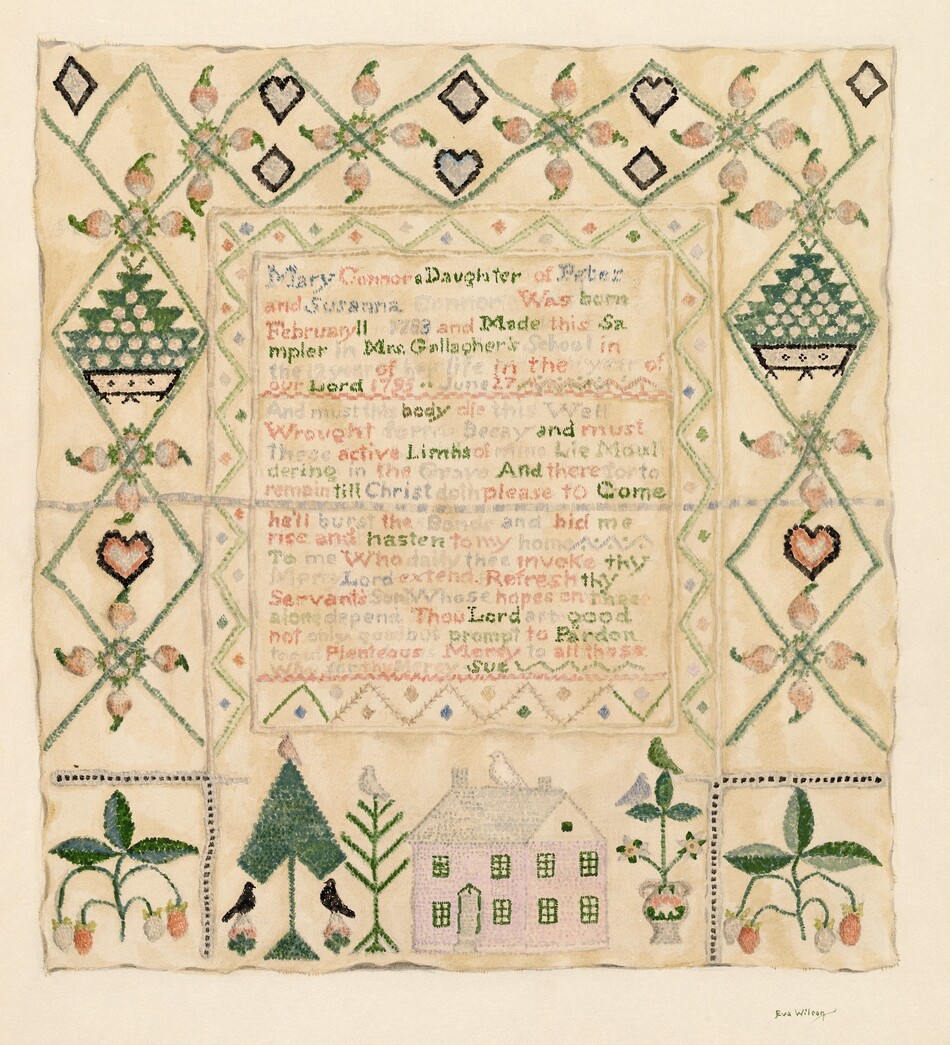 Mary Connor a Daughter of Peter
and Susanna Connor Was born
February 11 1783 and Made this Sa
mpler in Mrs. Gallagher's School in
the 12 year of her life in the year of
our Lord 1795 June 27
And must this body die this Well
Wrought form Decay and must
These active Limbs of mine Lie Moul
dering in the Grave And there for to
remain till Christ doth please to Come
he'll burst the Bonds and bid me
rise and hasten to my home
To me Who daily thee invoke thy
Lord extend Refresh thy
Servants Soul Whose hopes on thee
alone depend Thou Lord art good
not only good but prompt to Pardon
Plenteous Mercy to all those
Who for thy Mercy Sue
Eva Wilson